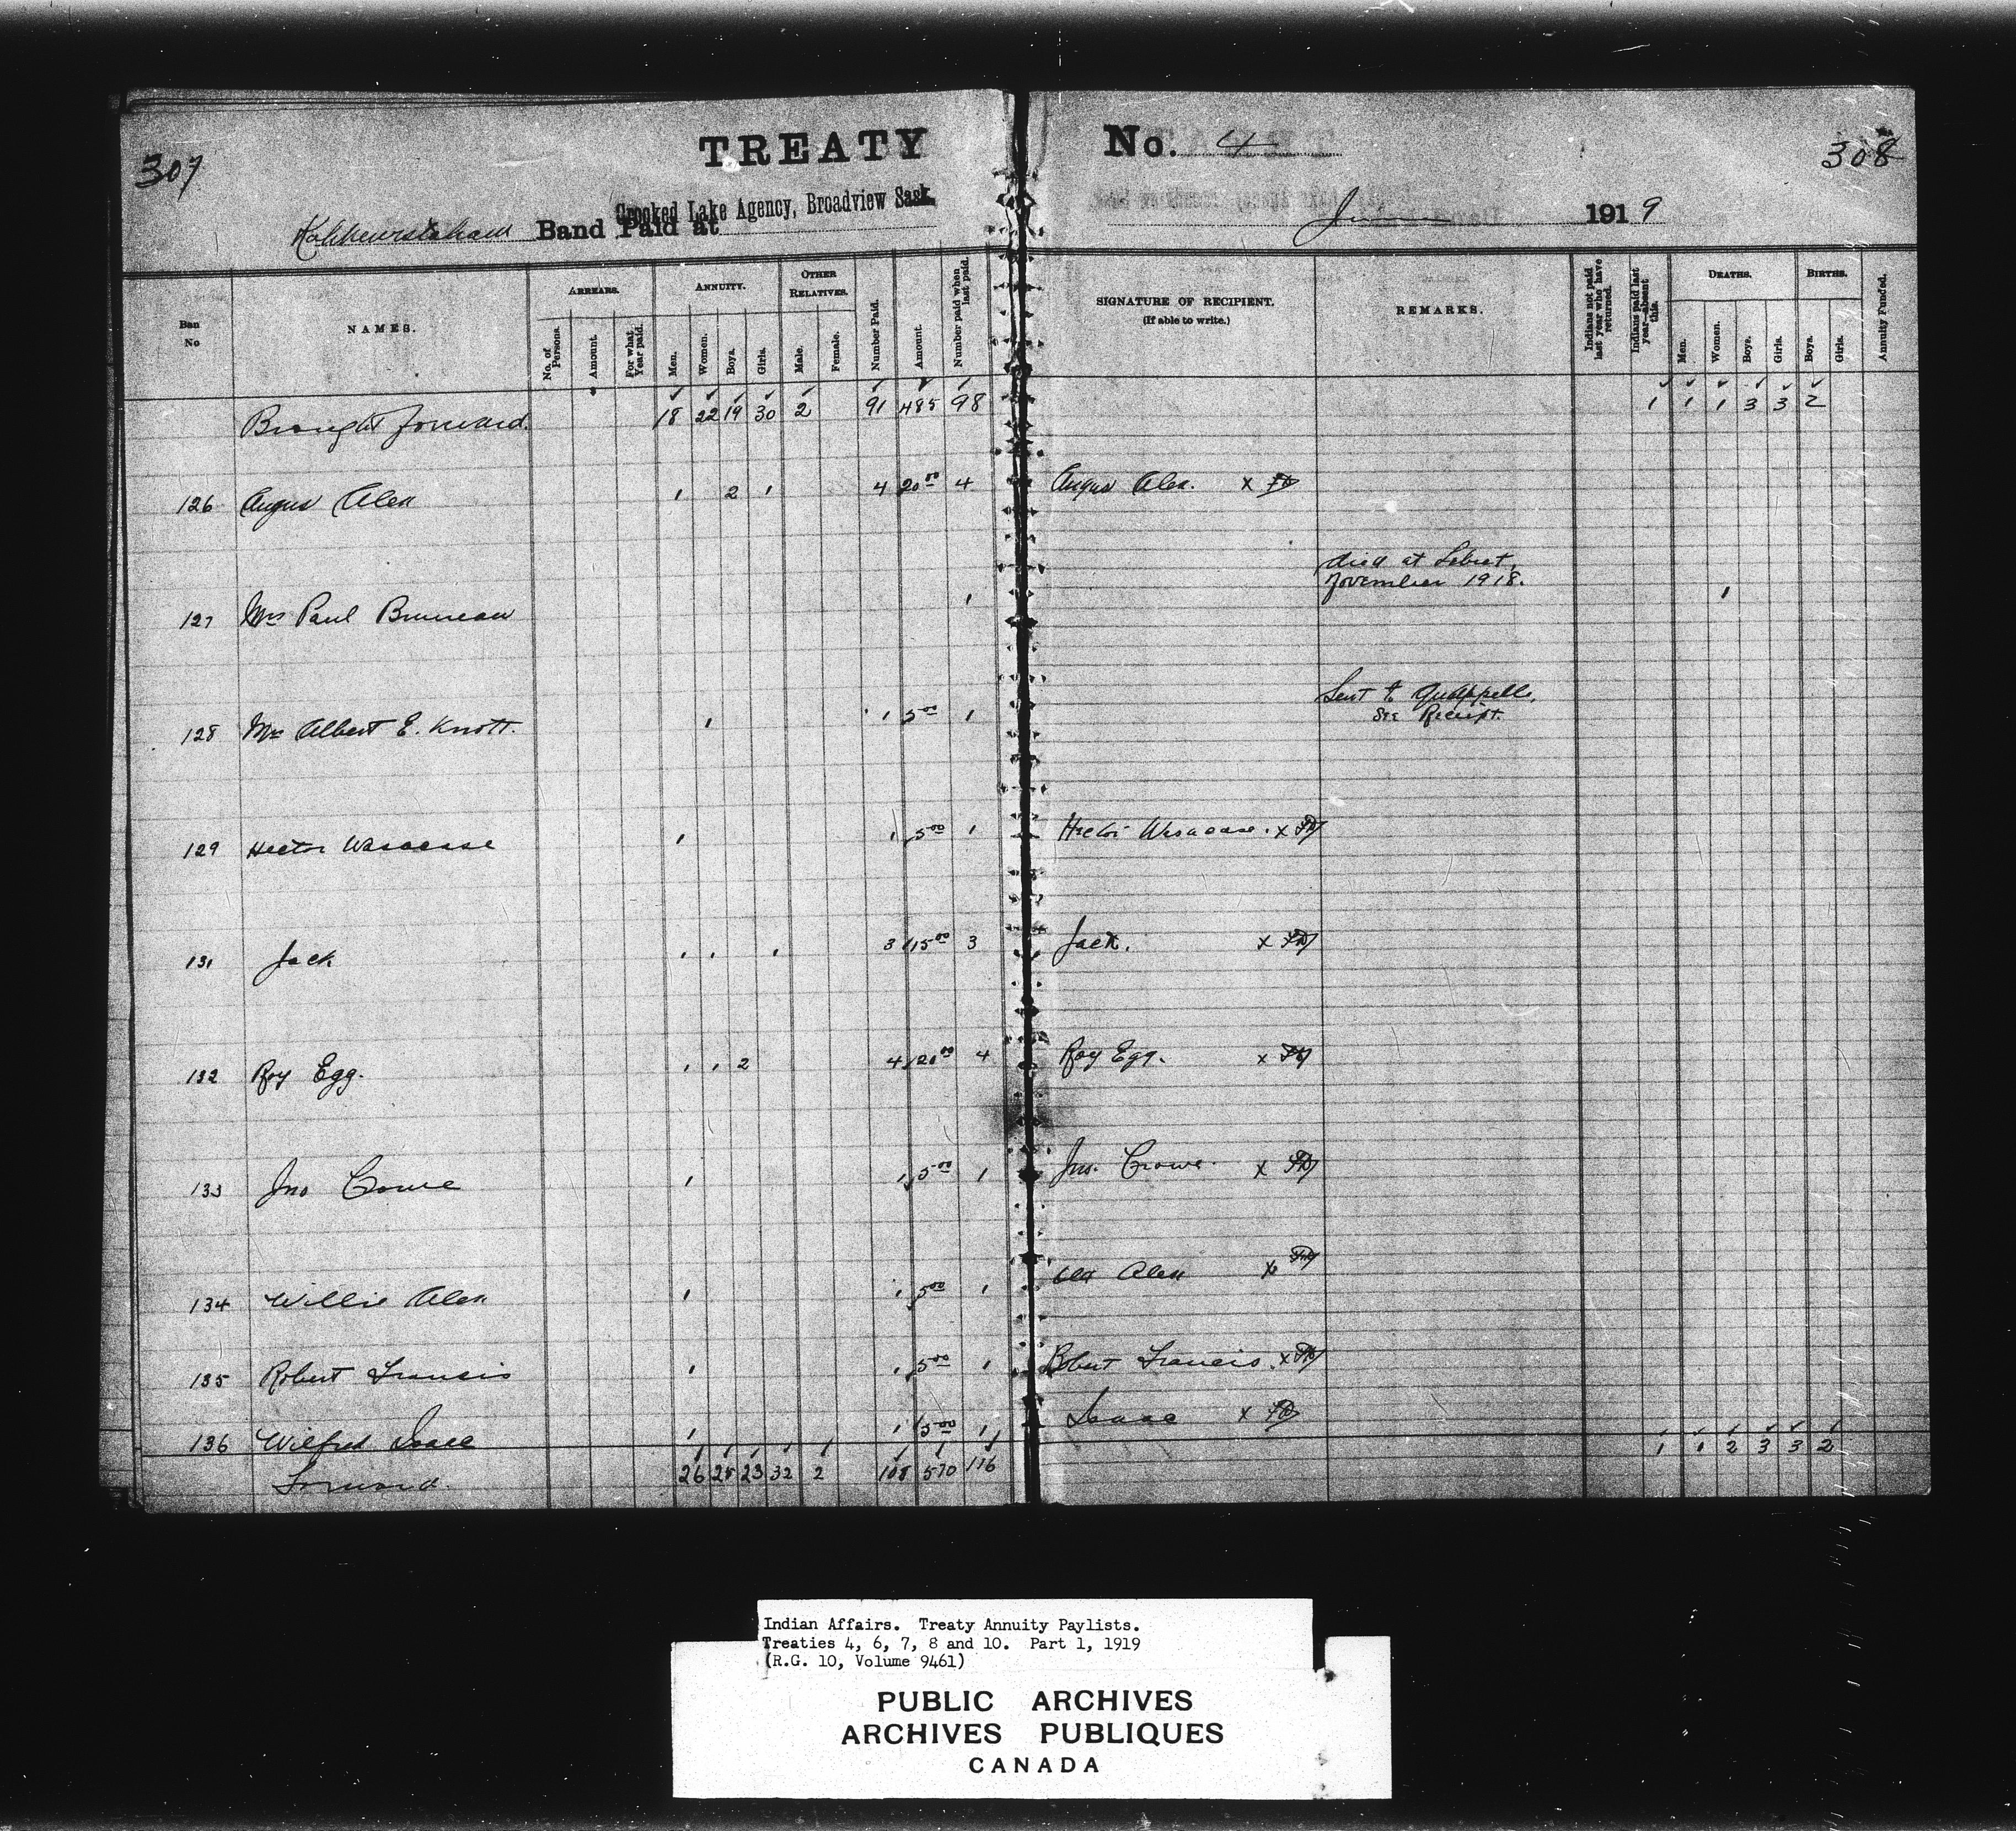 307
TREATY No. 4
308
Kahkewistahaw Band Paid at Crooked Lake Agency, Broadview Sask. June 1919
Ban No
NAMES.
ARREARS.
No. of Persons.
Amount.
For what Year paid.
ANNUITY.
Men.
Women.
Boys.
Girls.
OTHER RELATIVES.
Male.
Female.
Number Paid.
Amount.
Number paid when last paid.
SIGNATURE OF RECIPIENT.
(If able to write.)
REMARKS.
Indians not paid last year who have returned.
Indians paid last year—absent this.
DEATHS.
Men.
Women.
Boys.
Girls.
BIRTHS.
Boys.
Girls.
Annuity Funded.
Brought forward. 18 22 19 30 2 91 485 98 1 1 1 3 3 2
126 Angus Alex 1 2 1 4 20 00 4 Angus Alex. x
died at Lebret,
November 1918.
127 Mrs Paul Bruneau 1 1
Sent to Qu'Appelle,
See Receipt.
128 Mrs Albert E. Knott. 1 1 5 00 1
129 Hector Wasacase 1 1 5 00 1 Hector Wasacase. x
131 Jack 1 1 1 3 15 00 3 Jack. x
132 Roy Egg. 1 1 2 4 20 00 4 Roy Egg. x
133 Jno Crowe 1 1 5 00 1 Jno. Crowe. x
134 Willie Alex 1 1 5 00 1 Alex x
135 Robert Francis 1 1 5 00 1 Robert Francis. x
136 Wilfred Isaac 1 1 5 00 1 Isaac x
Forward. 26 25 23 32 2 108 570 116 1 1 2 3 3 2
Indian Affairs. Treaty Annuity Paylists.
Treaties 4, 6, 7, 8 and 10. Part 1, 1919
(R.G. 10, Volume 9461)
PUBLIC ARCHIVES
ARCHIVES PUBLIQUES
CANADA